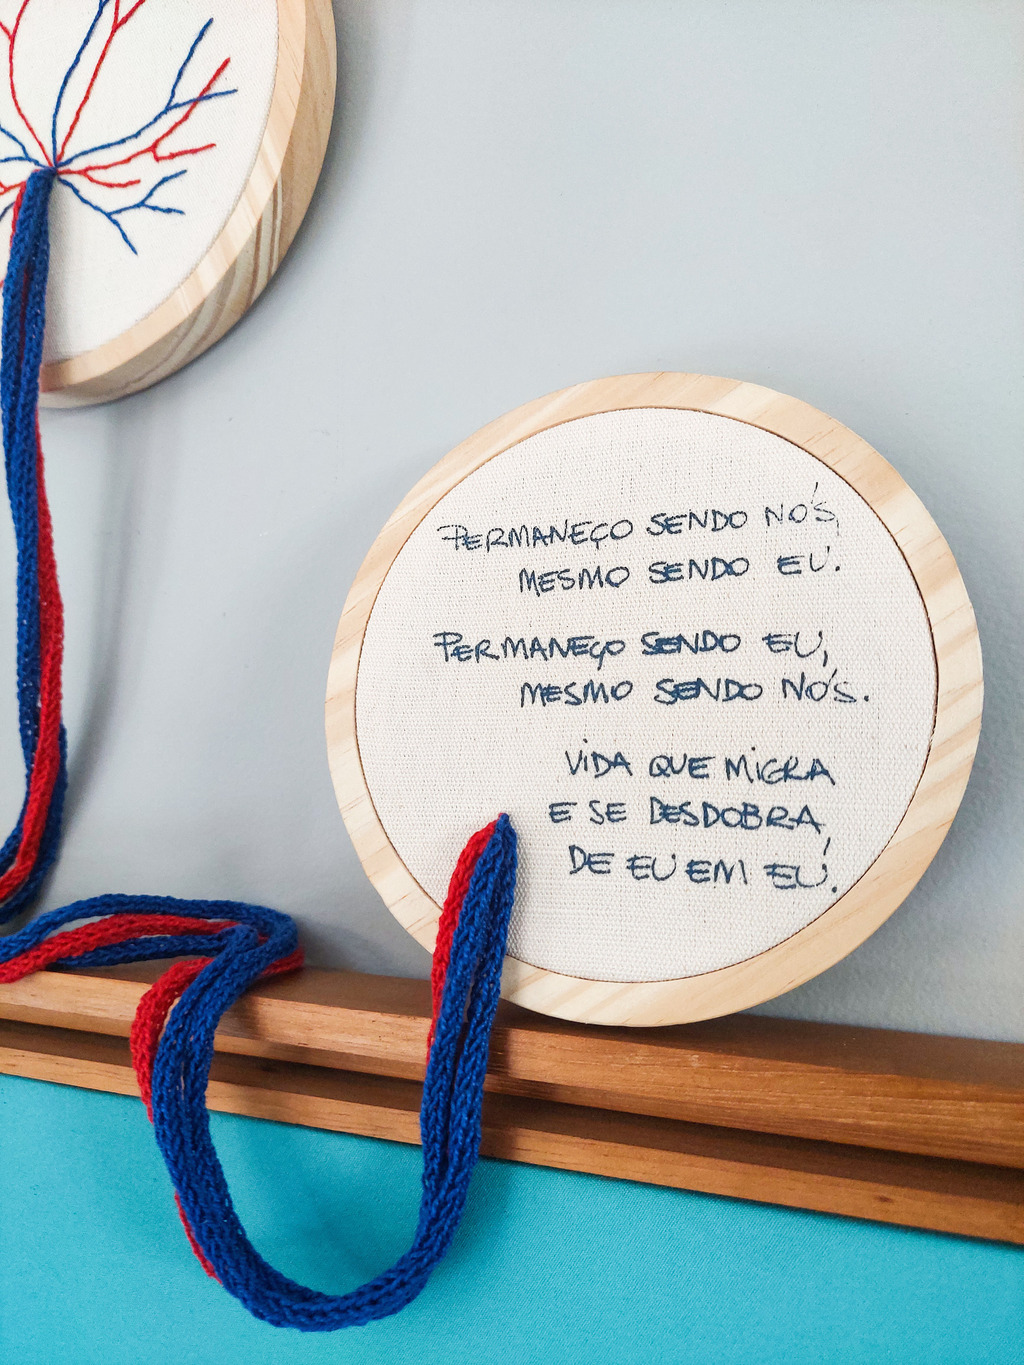 PERMANEÇO SENDO NÓS,
MESMO SENDO EU.
PERMANEÇO SENDO EU,
MESMO SENDO NÓS.
VIDA QUE MIGRA
E SE DESDOBRA,
DE EU EM EU.